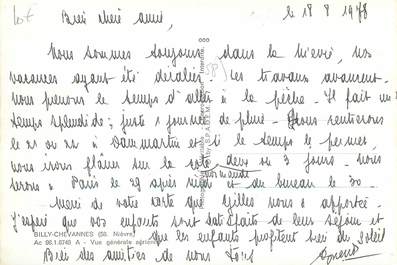 lot
Bien chère amie, le 18 8 1978
Nous sommes toujours dans la Nièvre, nos
vacances ayant été décalées. Les travaux avancent.
Nous prenons le temps d'aller à la pêche. Il fait un
temps splendide; juste 1 journée de pluie. Nous rentrerons
le 21 ou 22 à Dammartin et si le temps le permet,
nous irons flâner sur la côte, deux ou 3 jours. Nous
serons à Paris le 29 après midi et au bureau le 30.
Merci de votre carte que Gilles nous a apportée.
J'espère que vos enfants sont satisfaits de leur séjour et
que les enfants profitent bien du soleil
BILLY-CHEVANNES (58, Nièvre)
Ac 96.1.8745 A - Vue générale aérienne
Bien des amitiés de nous tous